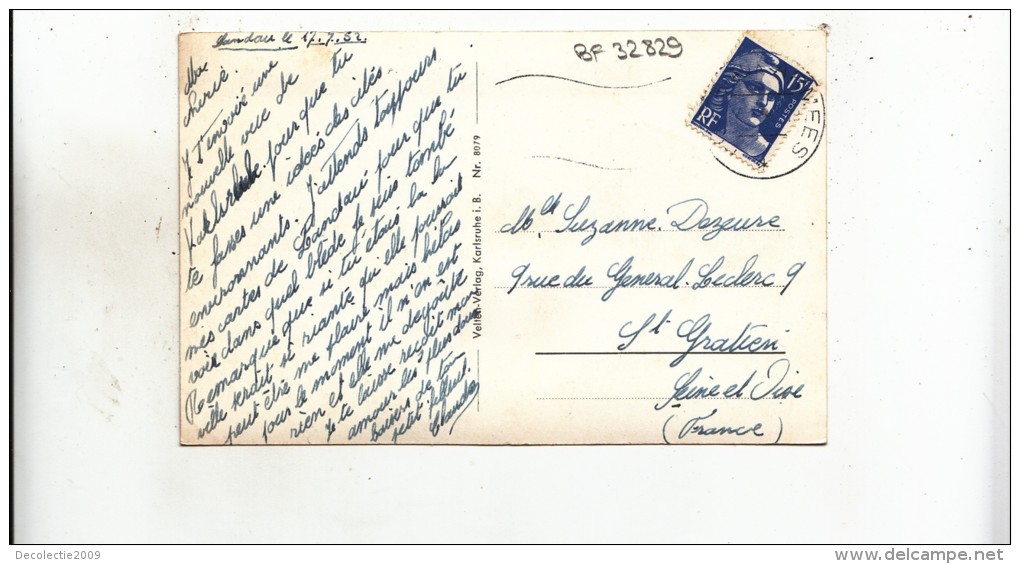 Landau le 17.7.52.
Ma
chérie.
Je t'envoie une
nouvelle vue de
Karlsruhe pour que tu
te fasses une idées des cités
environnants. J'attends toujours
mes cartes de Landau pour que tu
voie dans quel blède je suis tombé
Remarque que si tu étais là la
ville serait si riante qu'elle pourrait
peut être me plaire mais hélas
pour le moment il n'en est
rien et elle me dégoûte
Je te laisse reçoit mon
amour les plus doux
baisers de ton
petit
Claude
BF 32829
15F
POSTES
RF
MEES
Velten-Verlag, Karlsruhe i. B. Nr. 8079
Mlle Suzanne Dazeure
9 rue du General Leclerc 9
St Gratien
Seine et Oise
(France)
Decolectie2009
www.delcampe.net